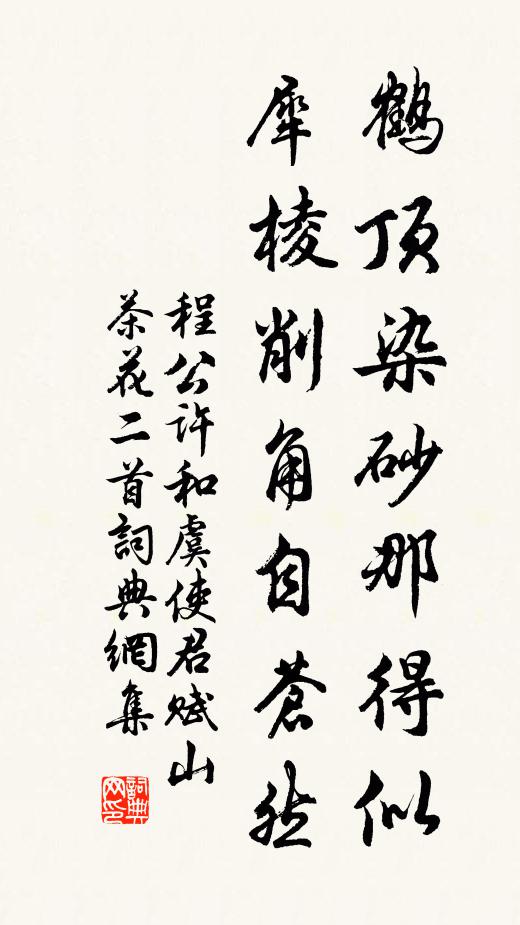 鶴頂染砂那得似
犀棱削角自蒼然
程公許和虞使君賦山
茶花二首詞典網集
詞典
网印